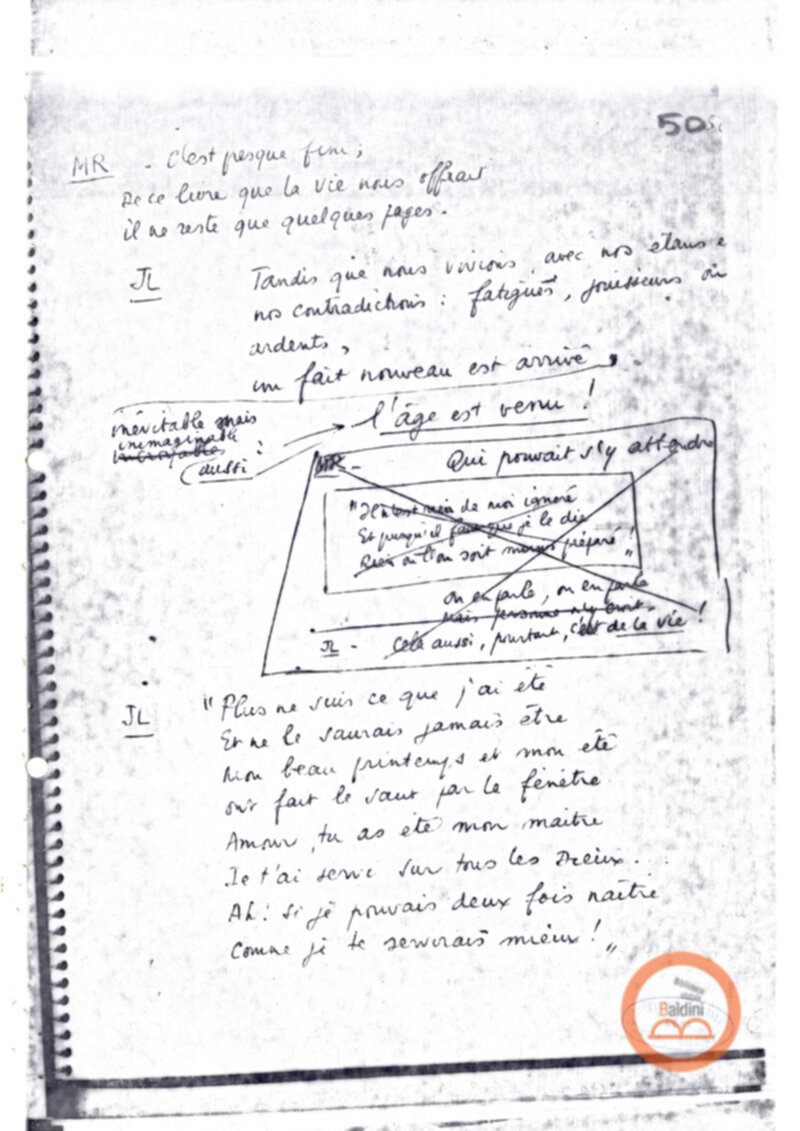 50
MR - C'est presque fini;
De ce livre que la vie nous offrait
il ne reste que quelques pages.
JL Tandis que nous vivions, avec nos élans e
nos contradictions: fatigués, jouisseurs ou
ardents,
un fait nouveau est arrivé,
inévitable mais
inimaginable
incroyables
aussi :
l'âge est venu!
MR - Qui pouvait s'y attendre
"Il n'est rien de moi ignoré
Et puisqu'il faut que je le die
Rien où l'on soit moins préparé!"
on en parle, on en parle
mais personne n'y croit.
JL - Cela aussi, pourtant, c'est de la vie!
JL "Plus ne suis ce que j'ai été
Et ne le saurais jamais être
Mon beau printemps et mon été
ont fait le saut par la fenêtre
Amour, tu as été mon maître
Je t'ai servi sur tous les Dieux.
Ah! si je pouvais deux fois naître
Comme je te servirais mieux!"
Baldini